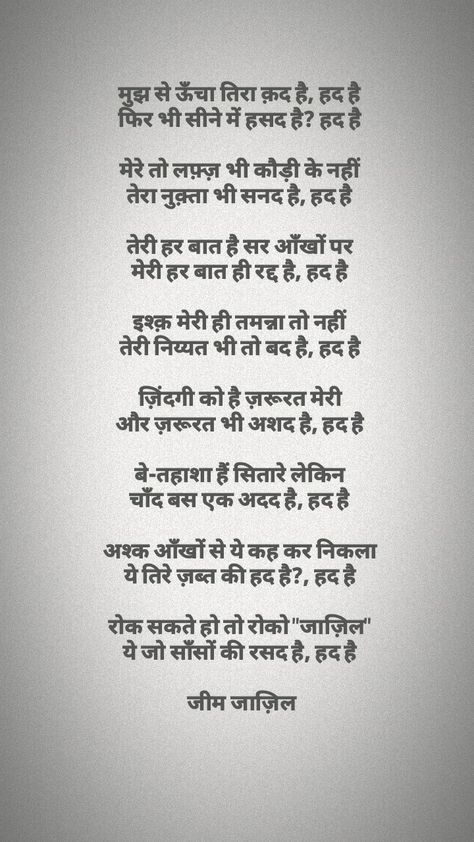 मुझ से ऊँचा तिरा क़द है, हद है
फिर भी सीने में हसद है? हद है
मेरे तो लफ़्ज़ भी कौड़ी के नहीं
तेरा नुक़्ता भी सनद है, हद है
तेरी हर बात है सर आँखों पर
मेरी हर बात ही रद्द है, हद है
इश्क़ मेरी ही तमन्ना तो नहीं
तेरी निय्यत भी तो बद है, हद है
ज़िंदगी को है ज़रूरत मेरी
और ज़रूरत भी अशद है, हद है
बे-तहाशा हैं सितारे लेकिन
चाँद बस एक अदद है, हद है
अश्क आँखों से ये कह कर निकला
ये तिरे ज़ब्त की हद है?, हद है
रोक सकते हो तो रोको "जाज़िल"
ये जो साँसों की रसद है, हद है
जीम जाज़िल